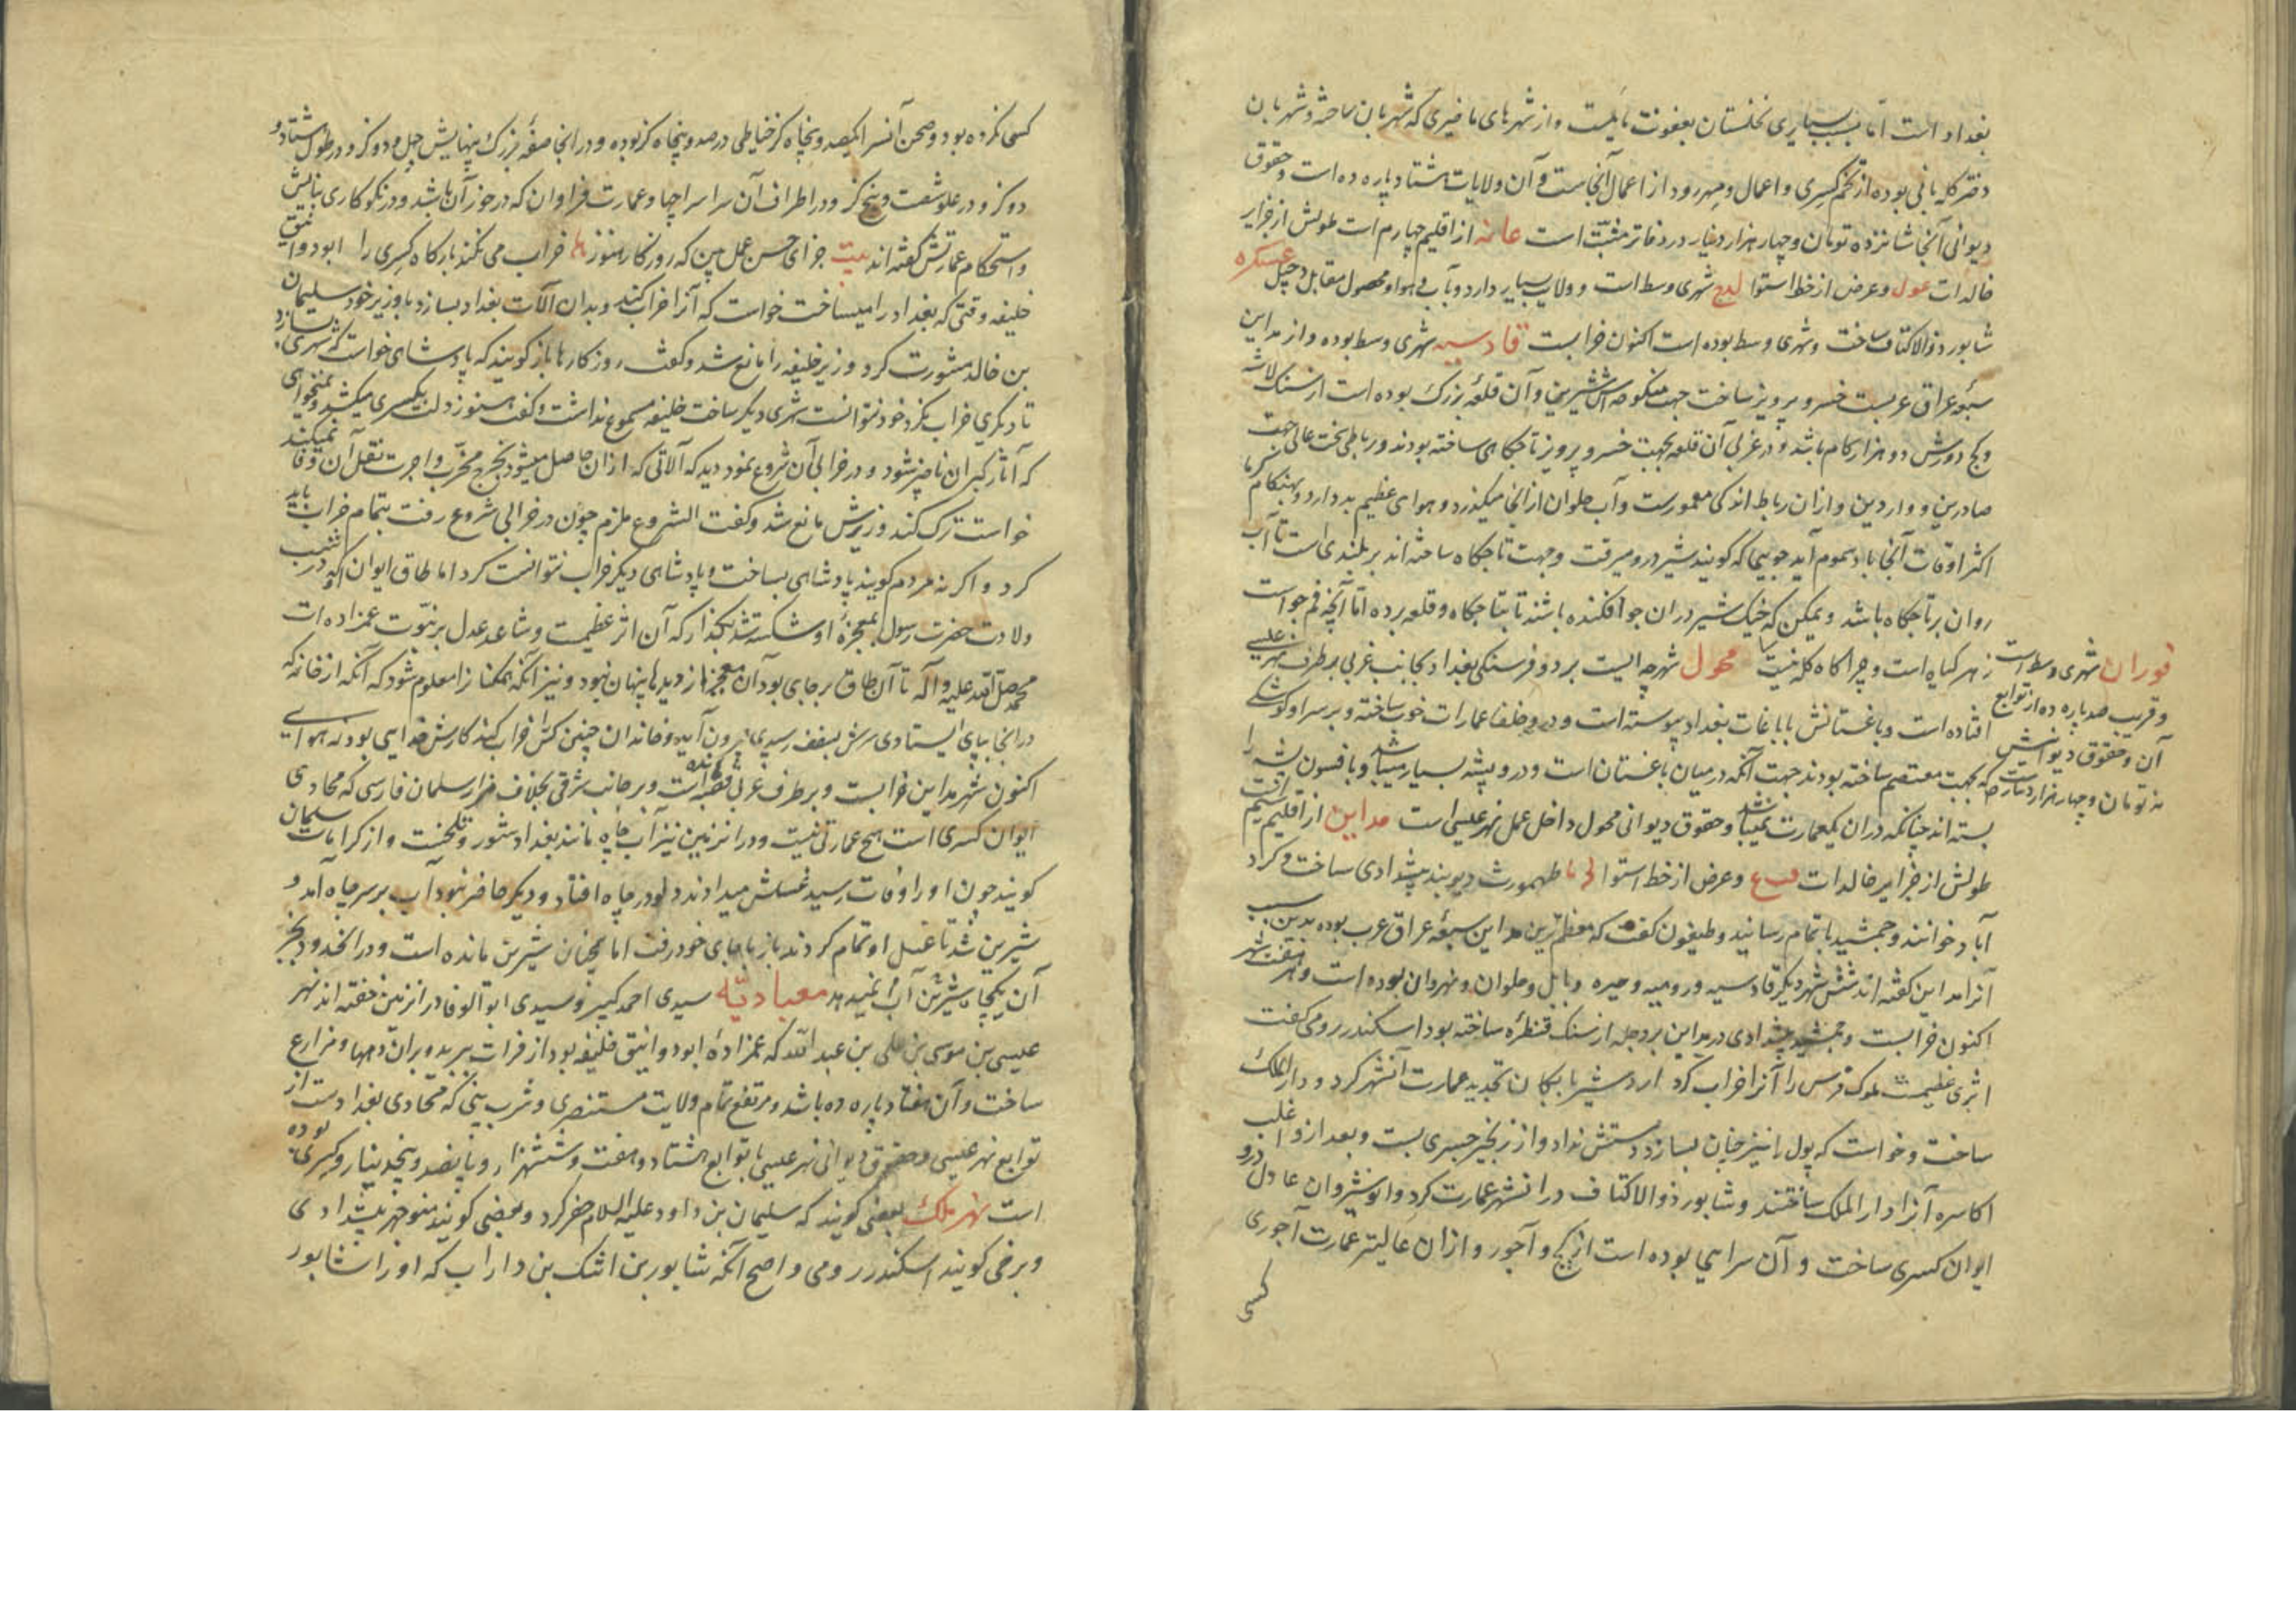 بغداد است اما بسبب بسیاری نخلستان بعفونت مایلست و از شهرهای ما فیری که شهربان ساخته و شهربان
دختر کله بانی بوده از تخم کسری و اعمال و مهرود از اعمال آنجاست و آن ولایات هشتاد پاره ده است و حقوق
دیوانی آنجا شانزده تومان و چهار هزار دینار در دفاتر مثبت است عانه از اقلیم چهارم است طولش از جزایر
خالدات عول و عرض از خط استوا لدع شهری وسط است و ولایت بسیار دارد و آب و هوا و محصول مقابل دجیل عسکره
شابور ذو الاکتاف ساخت و شهری وسط بوده است اکنون خرابست قادسیه شهری وسط بوده و از مداین
سبعه عراق عربست خسرو پرویز ساخت جهت منکوحه اش شیرین و آن قلعه بزرک بوده است از سنک لاشه
و کج دورش دو هزار کام باشد و در غربی آن قلعه بجهت خسرو پرویز تاجکاهی ساخته بودند و رباطی سخت عالی جهت
صادرین و واردین و از ان رباط اندکی معمورست و آب حلوان از انجا میکذرد و هوای عظیم بد دارد و بهنکام کرما
اکثر اوقات آنجا باد سموم آید جویی که کویند شیر درو میرفت و جهت تاجکاه ساخته اند بر بلندی است تا آب
روان بر تاجکاه باشد و یمکن که خیک شیر دران جو افکنده باشند تا بتاجکاه و قلعه برده اما آنچه فم جو است
زهر کیاه است و چراکاه کله نیست محول شهرچه ایست بر دو فرسنکی بغداد بجانب غربی بر طرف نهر عیسی
افتاده است و باغستانش بباغات بغداد پیوسته است و درو خلفا عمارات خوب ساخته و بر سر او کوشکی
که بجهت معتصم ساخته بودند جهت آنکه در میان باغستان است و درو پشه بسیار میباشد و بافسون پشه را
بسته اند چنانکه دران یک عمارت نمیباشد و حقوق دیوانی محول داخل عمل نهر عیسی است مداین از اقلیم سیم است
طولش از جزایر خالدات فب ع و عرض از خط استوا لح ما طهمورث دیوبند پیشدادی ساخت و کرد
آباد خوانند و جمشید باتمام رسانید و طیفون کفت که معظم ترین مداین سبعه عراق عرب بوده بدین سبب
آنرا مداین کفته اند شش شهر دیکر قادسیه و رومیه و حیره و بابل و حلوان و نهروان بوده است و هر هفت شهر
اکنون خرابست و جمشید پیشدادی در مداین بر دجله از سنک قنطره ساخته بود اسکندر رومی کفت
اثری عظیمست ملوک فرس را آنرا خراب کرد اردشیر بابکان تجدید عمارت آنشهر کرد و دار الملک
ساخت و خواست که پول را نیز چنان بسازد دستش نداد و از زنجیر جسری بست و بعد ازو اغلب
اکاسره آنرا دار الملک ساختند و شابور ذو الاکتاف دران شهر عمارت کرد و انوشیروان عادل درو
ایوان کسری ساخت و آن سرایی بوده است از کج و آجور و از ان عالیتر عمارت آجوری
کسی
فوران شهری وسط است
و قریب صد پاره ده از توابع
آن و حقوق دیوانیش
نه تومان و چهار هزار دینارست
کسی نکرده بود و صحن آنسرا یکصد و پنجاه کز خیاطی در صد و پنجاه کز بوده و در انجا صفه بزرک پهنایش چهل و دو کز و در طول هشتاد و
دو کز و در علو شصت و پنج کز و در اطراف آن سرا سراچها و عمارت فراوان که در خور آن باشد و در نیکوکاری بنایش
و استحکام عمارتش کفته اند بیت جزای حسن عمل بین که روزکار هنوز خراب می نکند بارکاه کسری را ابو دوانیق
خلیفه وقتی که بغداد را میساخت خواست که آنرا خراب کند و بدان آلات بغداد بسازد با وزیر خود سلیمان
بن خالد مشورت کرد وزیر خلیفه را مانع شد و کفت روزکارها باز کویند که پادشاهی خواست که شهری بسازد
تا دیکری خراب نکرد خود نتوانست شهری دیکر ساخت خلیفه مسموع نداشت و کفت هنوز دلت بکسری میکشد و نمیخواهی
که آثار کبران ناچیز شود و در خرابی آن شروع نمود دید که آلاتی که از ان حاصل میشود بخرج مخرب و اجرت نقل آن وفا نمیکند
خواست ترک کند وزیرش مانع شد و کفت الشروع ملزم چون در خرابی شروع رفت بتمام خراب باید
کرد و اکر نه مردم کویند پادشاهی بساخت و پادشاهی دیکر خراب نتوانست کرد اما طاق ایوان که در شب
ولادت حضرت رسول بمعجزه او شکسته شد بکذار که آن اثر عظیمست و شاهد عدل بر نبوت عمزاده ات
محمد صلی الله علیه و آله تا آن طاق بر جای بود آن معجزه از دیدها پنهان نبود و نیز آنکه همکنان را معلوم شود که آنکه از خانه که
در انجا بپای ایستادی سرش بسقف رسیدی بیرون آید و خاندان چنین کس خراب کند کارش خدایی بود نه هوایی
اکنون شهر مداین خرابست و بر طرف غربی قصبه مانده است و بر جانب شرقی بخلاف مزار سلمان فارسی که محاذی
ایوان کسری است هیچ عمارتی نیست و در انزمین نیز آب چاه مانند بغداد شور و تلخست و از کرامات سلمان
کویند چون او را وفات رسید غسلش میدادند دلو در چاه افتاد و دیکر حاضر نبود آب بر سر چاه آمد و
شیرین شد تا غسل او تمام کردند باز با جای خود رفت اما همچنان شیرین مانده است و در انحدود بجز
آن یکچاه شیرین آب نمیدهد معبادیّه سیدی احمد کبیر و سیدی ابو الوفا در انزمین خفته اند نهر
عیسی بن موسی بن علی بن عبد الله که عمزاده ابو دوانیق خلیفه بود از فرات ببرید و بران دهها و مزارع
ساخت و آن هفتاد پاره ده باشد و مرتفع تمام ولایت مستنصری و شرب بینی که محاذی بغدادست از
توابع نهر عیسی و حقوق دیوانی نهر عیسی با توابع هشتاد و هفت و ششهزار و پانصد و پنجه دینار و کسری بوده
است نهر ملک بعضی کویند که سلیمان بن داود علیه السلام حفر کرد و بعضی کویند منوچهر پیشدادی
و برخی کویند اسکندر رومی و اصح آنکه شابور بن اشک بن داراب که او را شابور